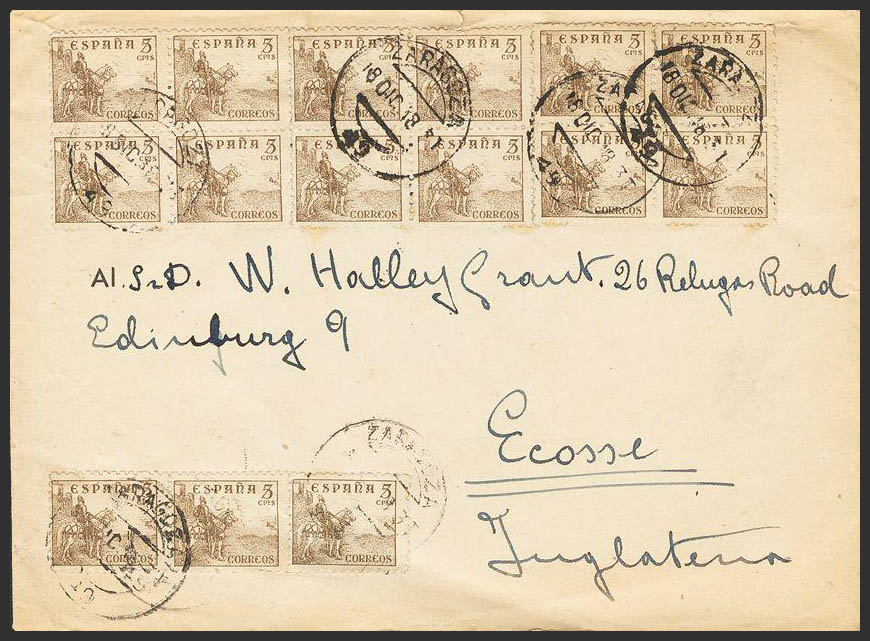 ESPAÑA 5 CTS ESPAÑA 5 CTS ESPAÑA 5 CTS ESPAÑA 5 CTS ESPAÑA 5 CTS ESPAÑA 5 CTS
CORREOS CORREOS CORREOS CORREOS CORREOS CORREOS
ZARAGOZA
18 DIC 18
49
ESPAÑA 5 CTS ESPAÑA 5 CTS ESPAÑA 5 CTS ESPAÑA 5 CTS ESPAÑA 5 CTS ESPAÑA 5 CTS
CORREOS CORREOS CORREOS CORREOS CORREOS CORREOS
Al. SrD. W. Halley Grant. 26 Relugas Road
Edinburg 9
Ecosse
Inglaterra
ZARAGOZA
ESPAÑA 5 CTS ESPAÑA 5 CTS ESPAÑA 5 CTS
CORREOS CORREOS CORREOS